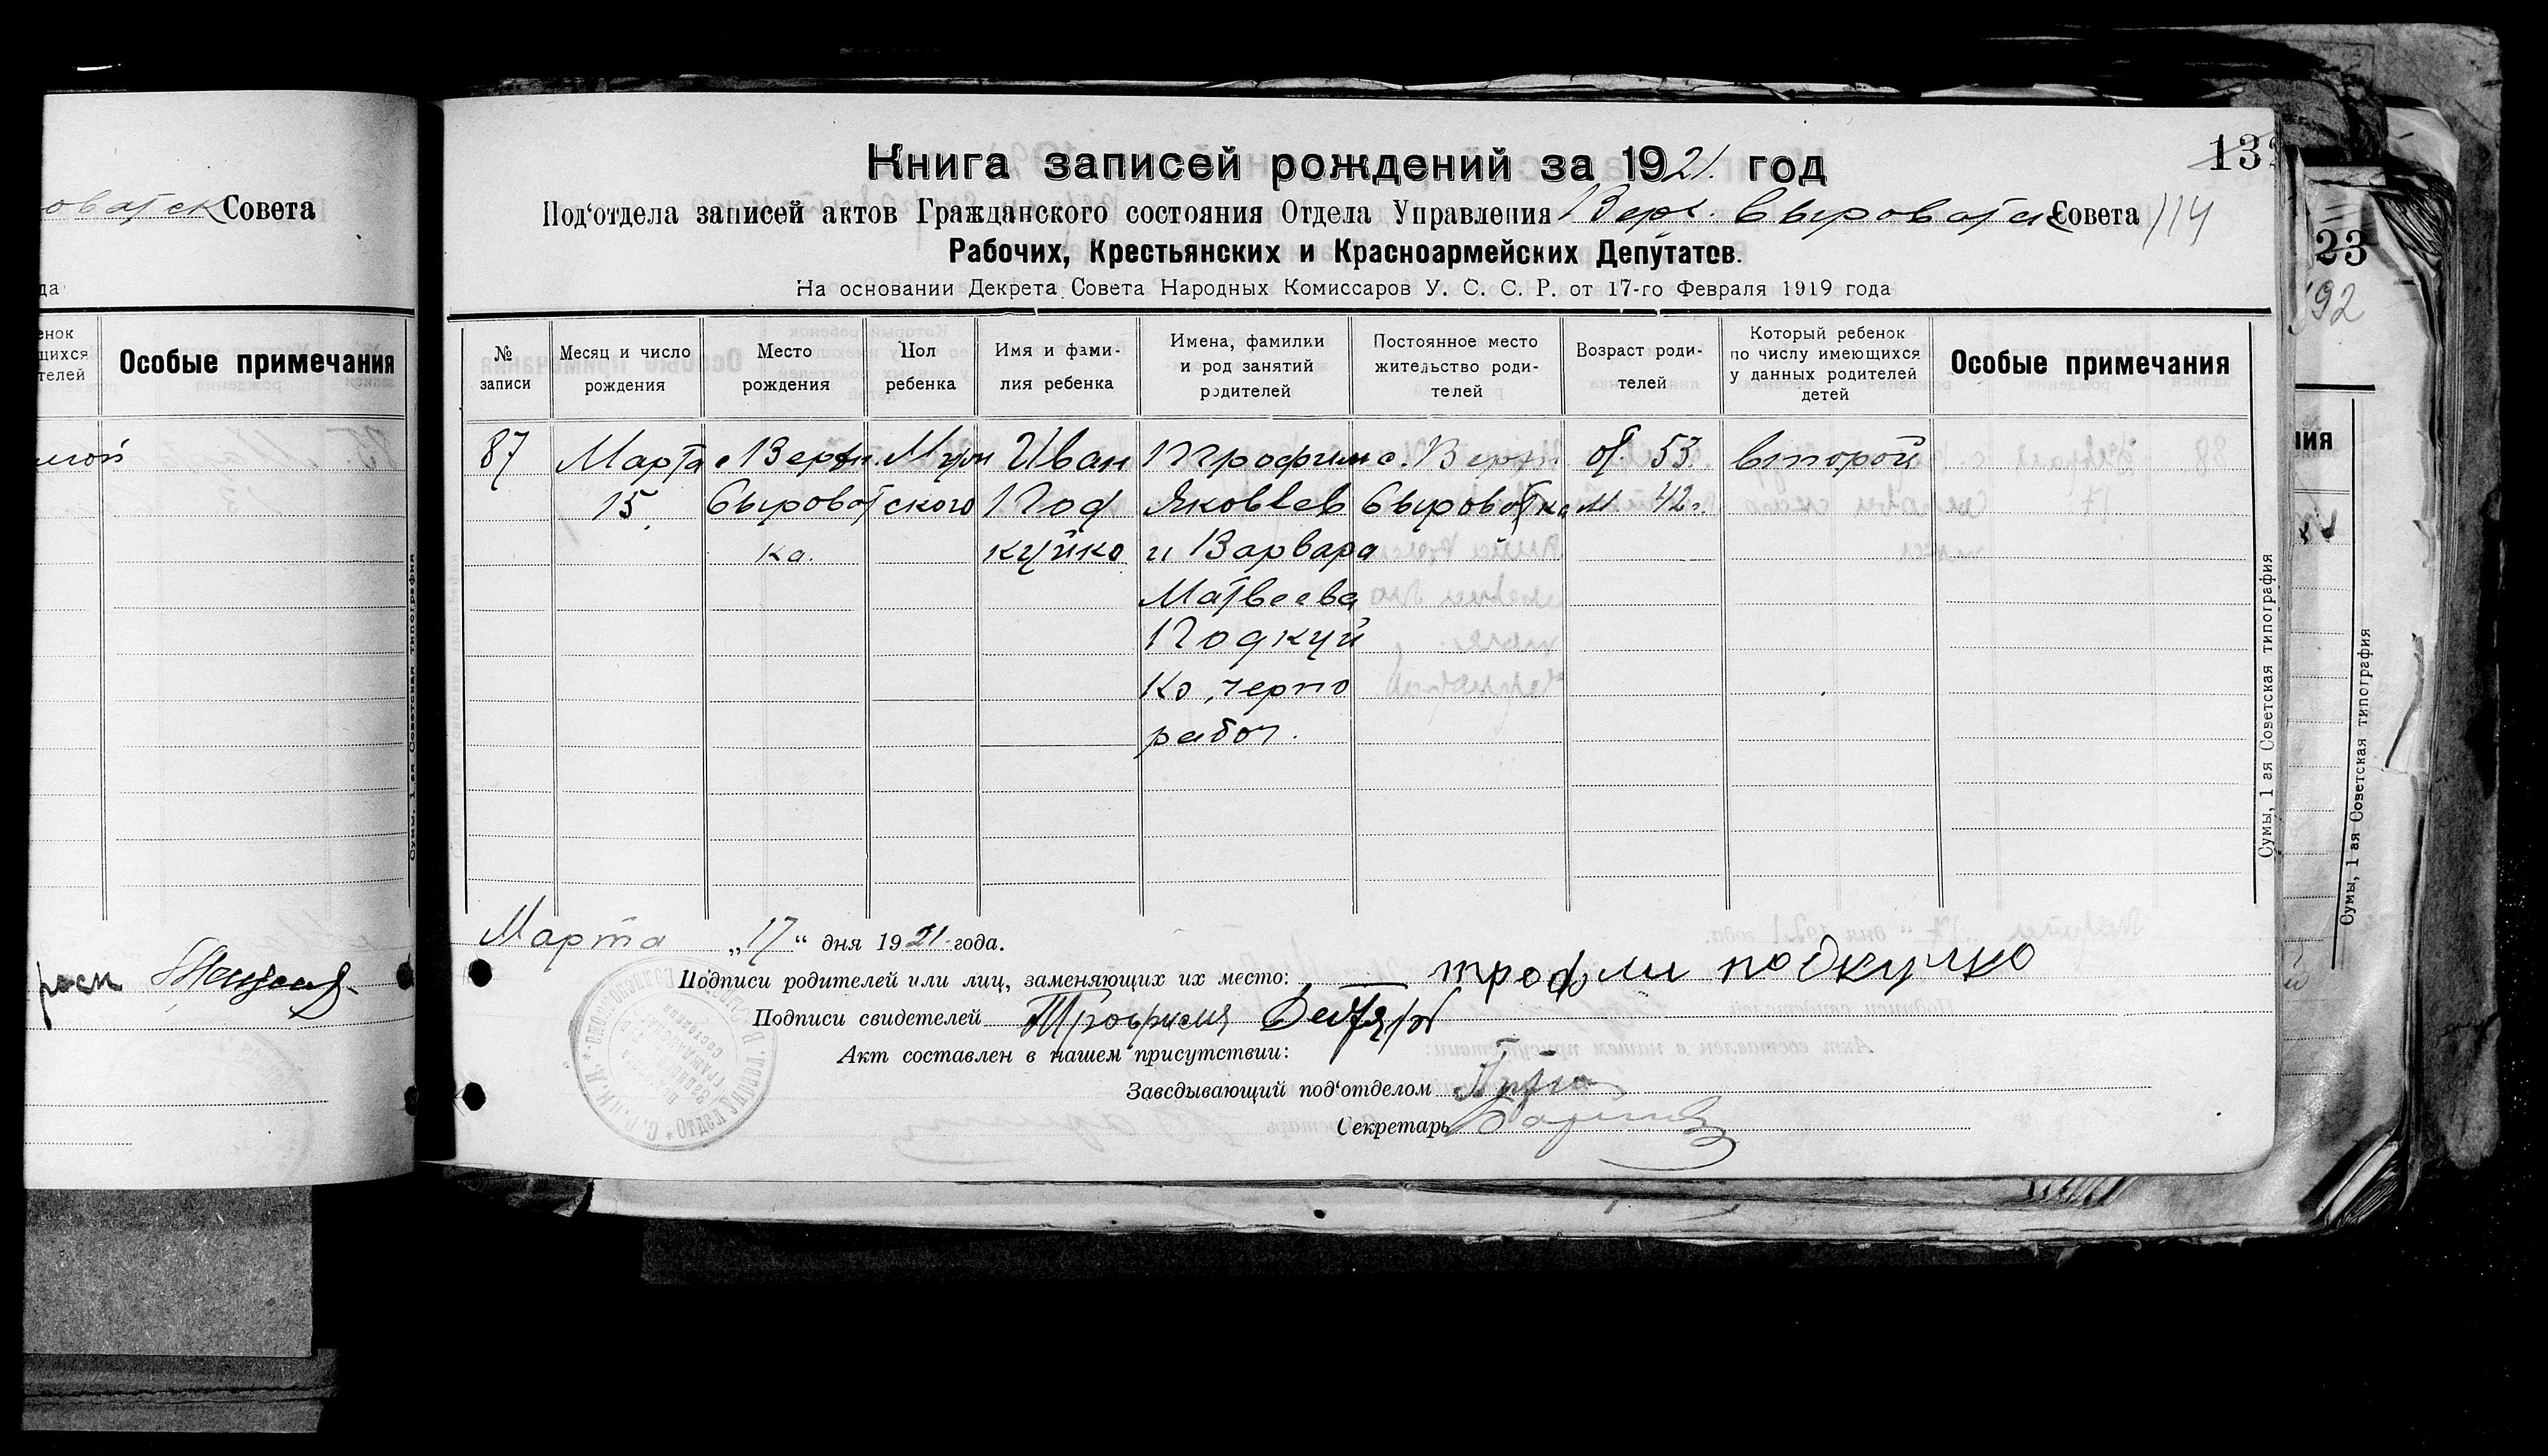 оватск Совета
да
енок
щихся
телей
Особые примечания
Сумы, 1 ая Советская типография
Книга записей рождений за 1921. год
13
Под'отдела записей актов Гражданского состояния Отдела Управления Верх. Сыроватск Совета
114
Рабочих, Крестьянских и Красноармейских Депутатов.
На основании Декрета Совета Народных Комиссаров У. С. С. Р. от 17-го Февраля 1919 года
№ записи
Месяц и число рождения
Место рождения
Пол ребенка
Имя и фами-лия ребенка
Имена, фамилии и род занятий родителей
Постоянное место жительство роди-телей
Возраст роди-телей
Который ребенок по числу имеющихся у данных родителей детей
Особые примечания
87 Марта с Верхн. Муж Иван Трофим с. Верхн. от 53. второй
15. Сыроват ского Под Яковлев Сыроватка М 42.
ка. куйко и Варвара
Матвеева
Подкуй
ко, черно
рабоч.
Марта „17“ дня 1921 года.
Подписи родителей или лиц, заменяющих их место: трофим подкуйко
Подписи свидетелей
Акт составлен в нашем присутствии:
Заведывающий под'отделом
Секретарь
Сумы, 1 ая Советская типография
23
192
ния
Сумы, 1 ая Советская типография